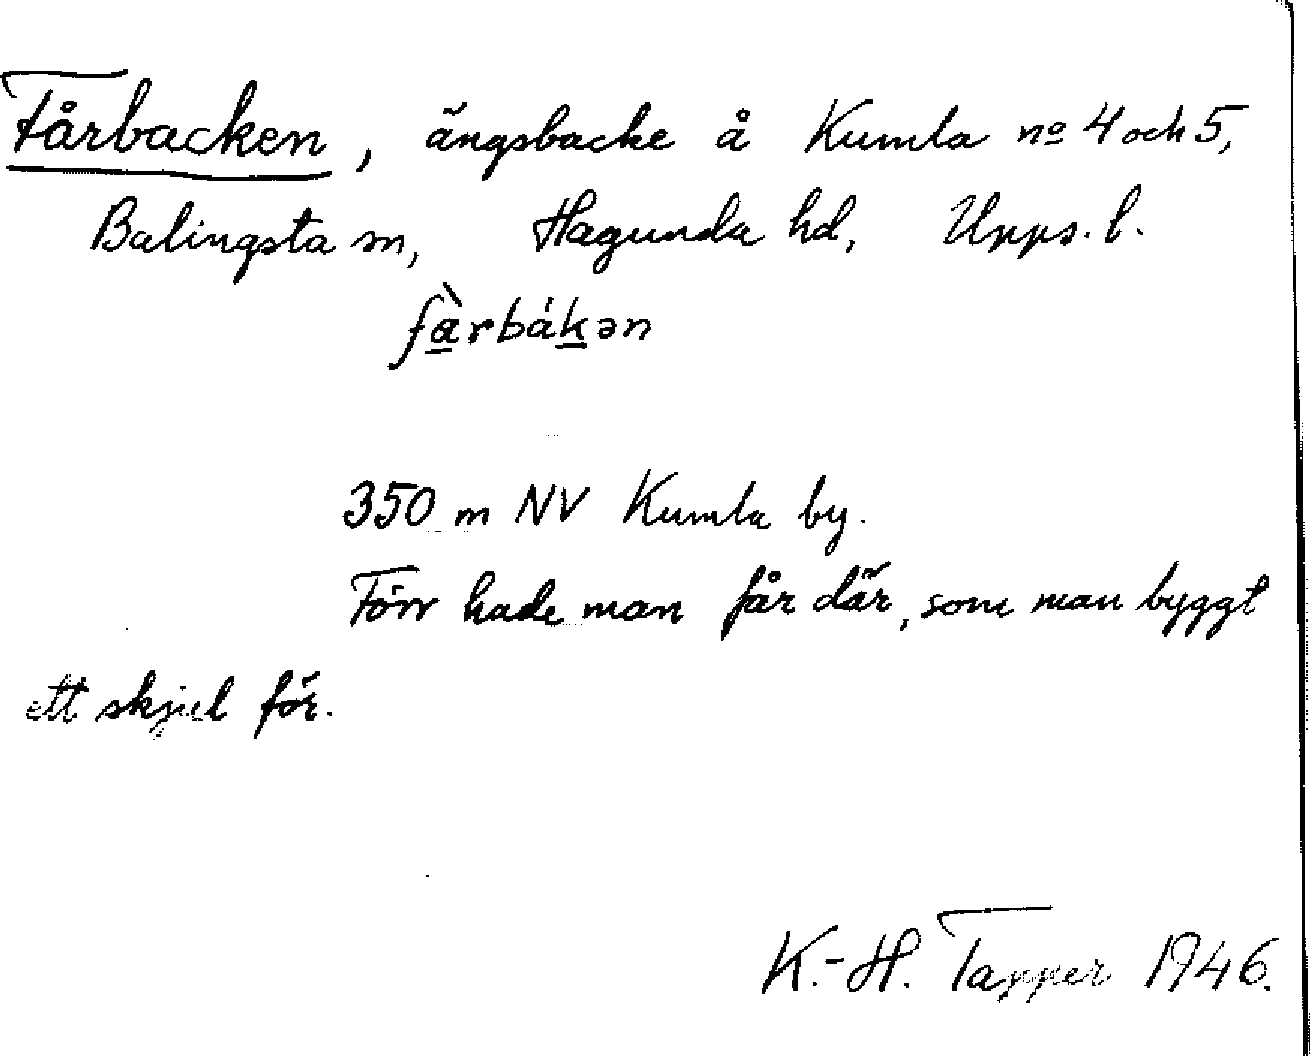 Fårbacken, ängsbacke å Kumla no 4 och 5,
Balingsta sn, Hagunda hd, Upps. l.
fàrbákən
350 m NV Kumla by.
Förr hade man får där, som man byggt
ett skjul för.
K.-H. Tapper 1946.